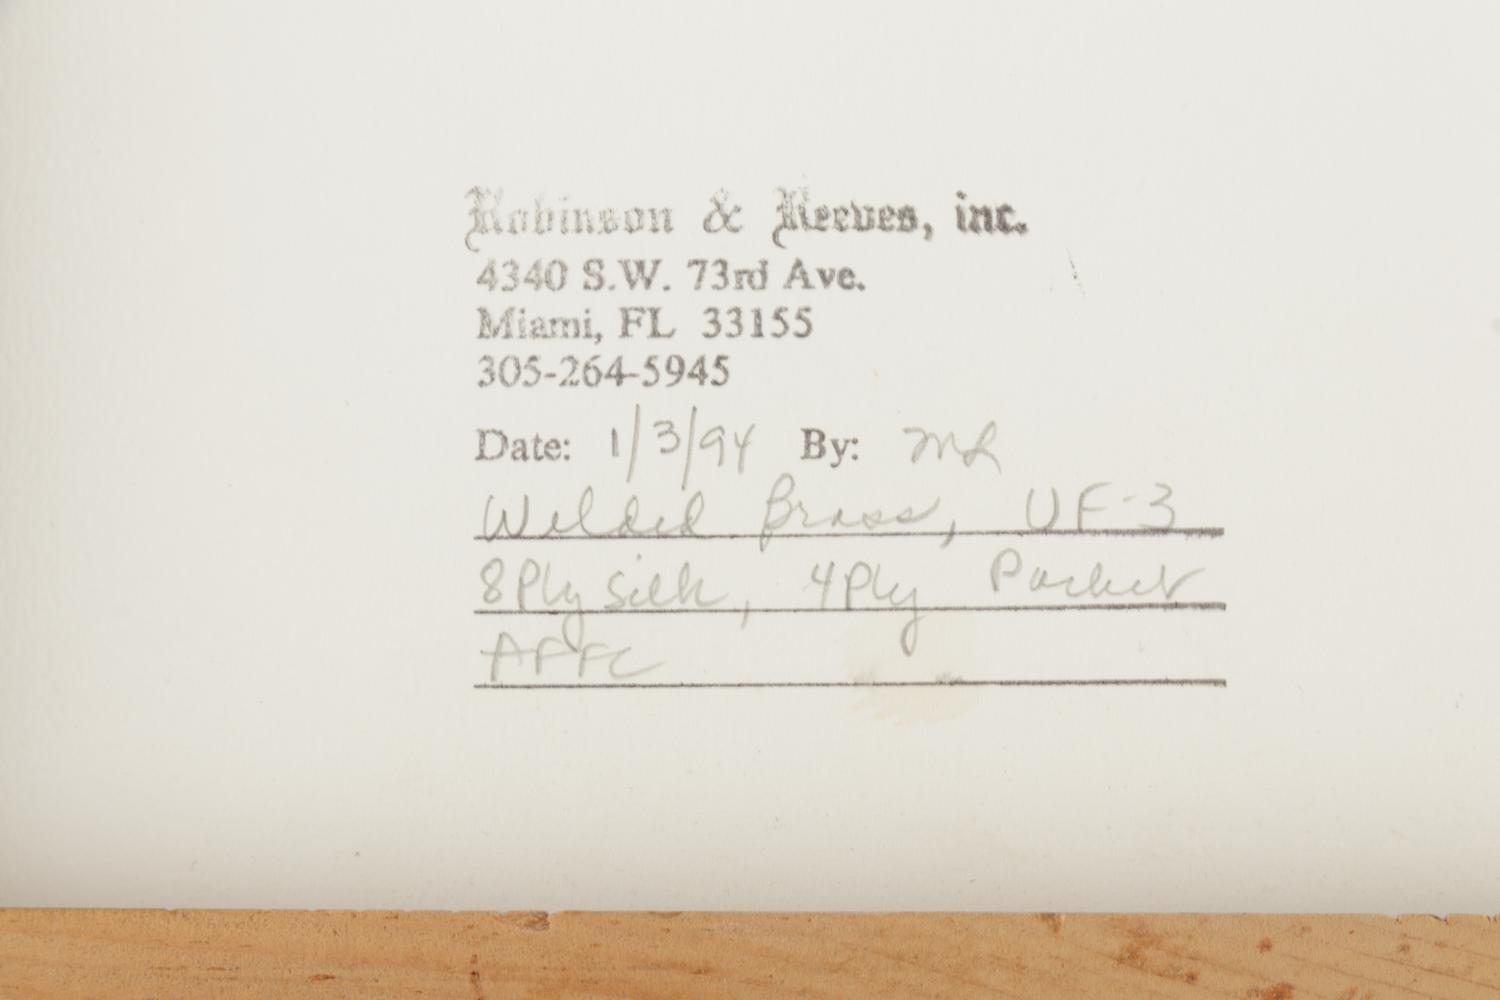 Robinson & Reeves, inc.
4340 S.W. 73rd Ave.
Miami, FL 33155
305-264-5945
Date: 1/3/94 By: MR
Welded Brass, UF-3
8Ply Silk, 4Ply Packet
AFFC